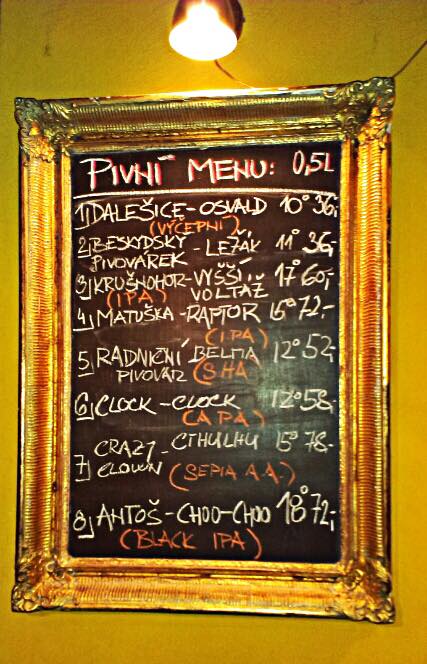 PIVNÍ MENU: 0,5L
1) DALEŠICE - OSVALD 10° 36,-
(VÝČEPNÍ)
2) BESKYDSKÝ - LEŽÁK 11° 36,-
PIVOVÁREK
3) KRUŠNOHOR - VYŠŠÍ 17° 60,-
(IPA) VOLTÁŽ
4) MATUŠKA - RAPTOR 15° 72,-
(IPA)
5) RADNIČNÍ 12° 52,-
PIVOVAR (SHA)
6) CLOCK - CLOCK 12° 58,-
(APA)
CRAZY - CTHULHU 15° 78,-
7) CLOWN (SEPIA A.A.)
8) ANTOŠ - CHOO-CHOO 18° 72,-
(BLACK IPA)